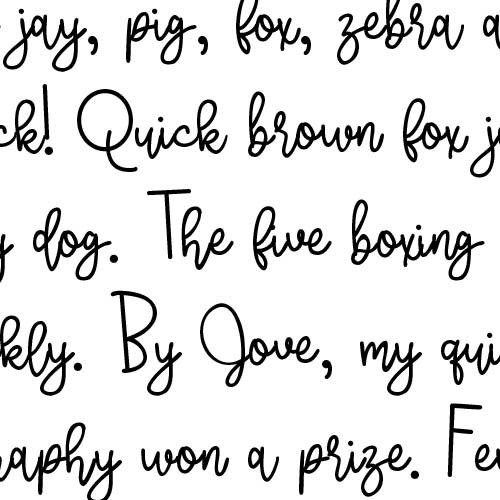 jay, pig, fox, zebra a
ck! Quick brown fox j
y dog. The five boxing
kly. By Jove, my qui
raphy won a prize. Few